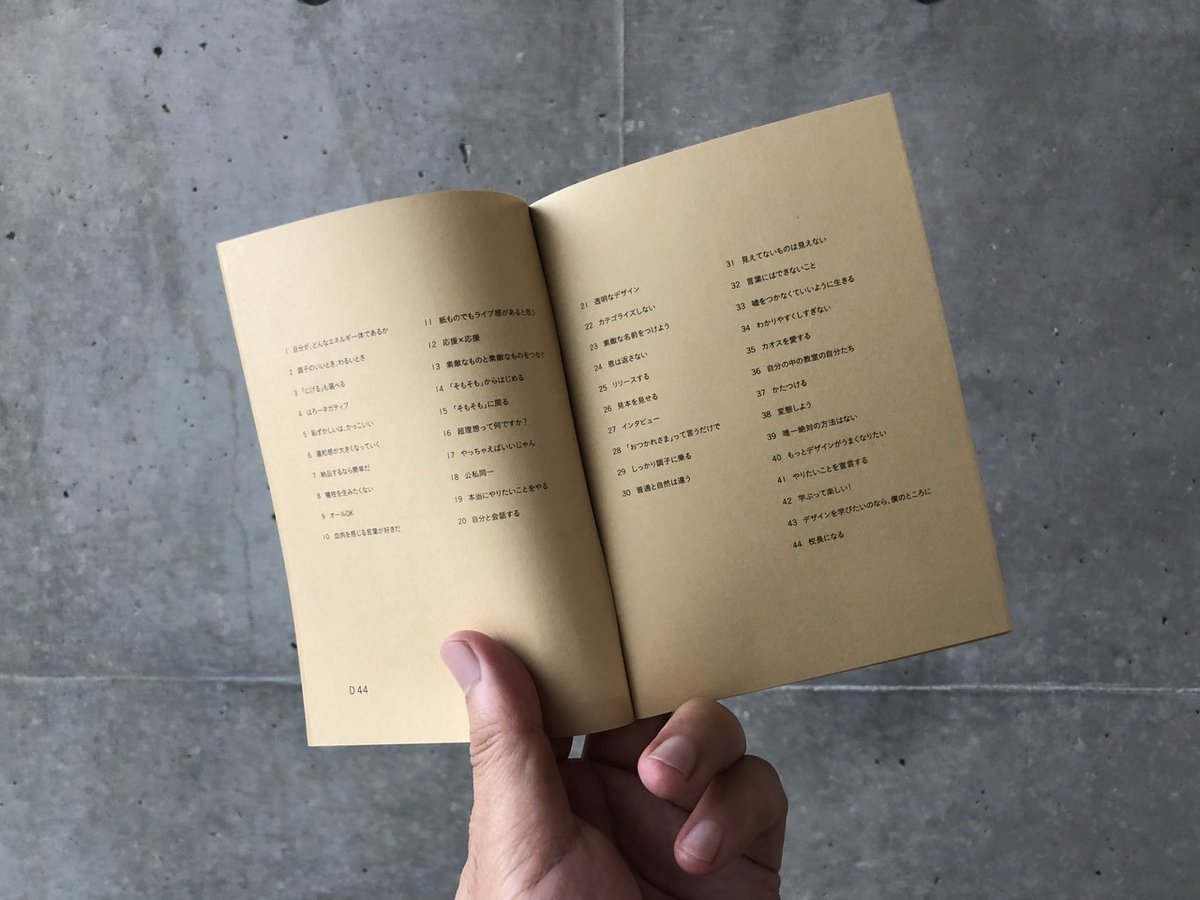 1 自分が、どんなエネルギー体であるか
2 調子のいいとき、わるいとき
3 「にげる」も選べる
4 はろーネガティブ
5 恥ずかしいは、かっこいい
6 違和感が大きくなっていく
7 納品するなら簡単だ
8 犠牲を生みたくない
9 オールOK
10 血肉を感じる言葉が好きだ
11 紙ものでもライブ感があると思う
12 応援×応援
13 素敵なものと素敵なものをつなぐ
14 「そもそも」からはじめる
15 「そもそも」に戻る
16 超理想って何ですか?
17 やっちゃえばいいじゃん
18 公私同一
19 本当にやりたいことをやる
20 自分と会話する
D 44
21 透明なデザイン
22 カテゴライズしない
23 素敵な名前をつけよう
24 恩は返さない
25 リリースする
26 見本を見せる
27 インタビュー
28 「おつかれさま」って言うだけで
29 しっかり調子に乗る
30 普通と自然は違う
31 見えてないものは見えない
32 言葉にはできないこと
33 嘘をつかなくていいように生きる
34 わかりやすくしすぎない
35 カオスを愛する
36 自分の中の教室の自分たち
37 かたつける
38 変態しよう
39 唯一絶対の方法はない
40 もっとデザインがうまくなりたい
41 やりたいことを宣言する
42 学ぶって楽しい!
43 デザインを学びたいのなら、僕のところに
44 校長になる